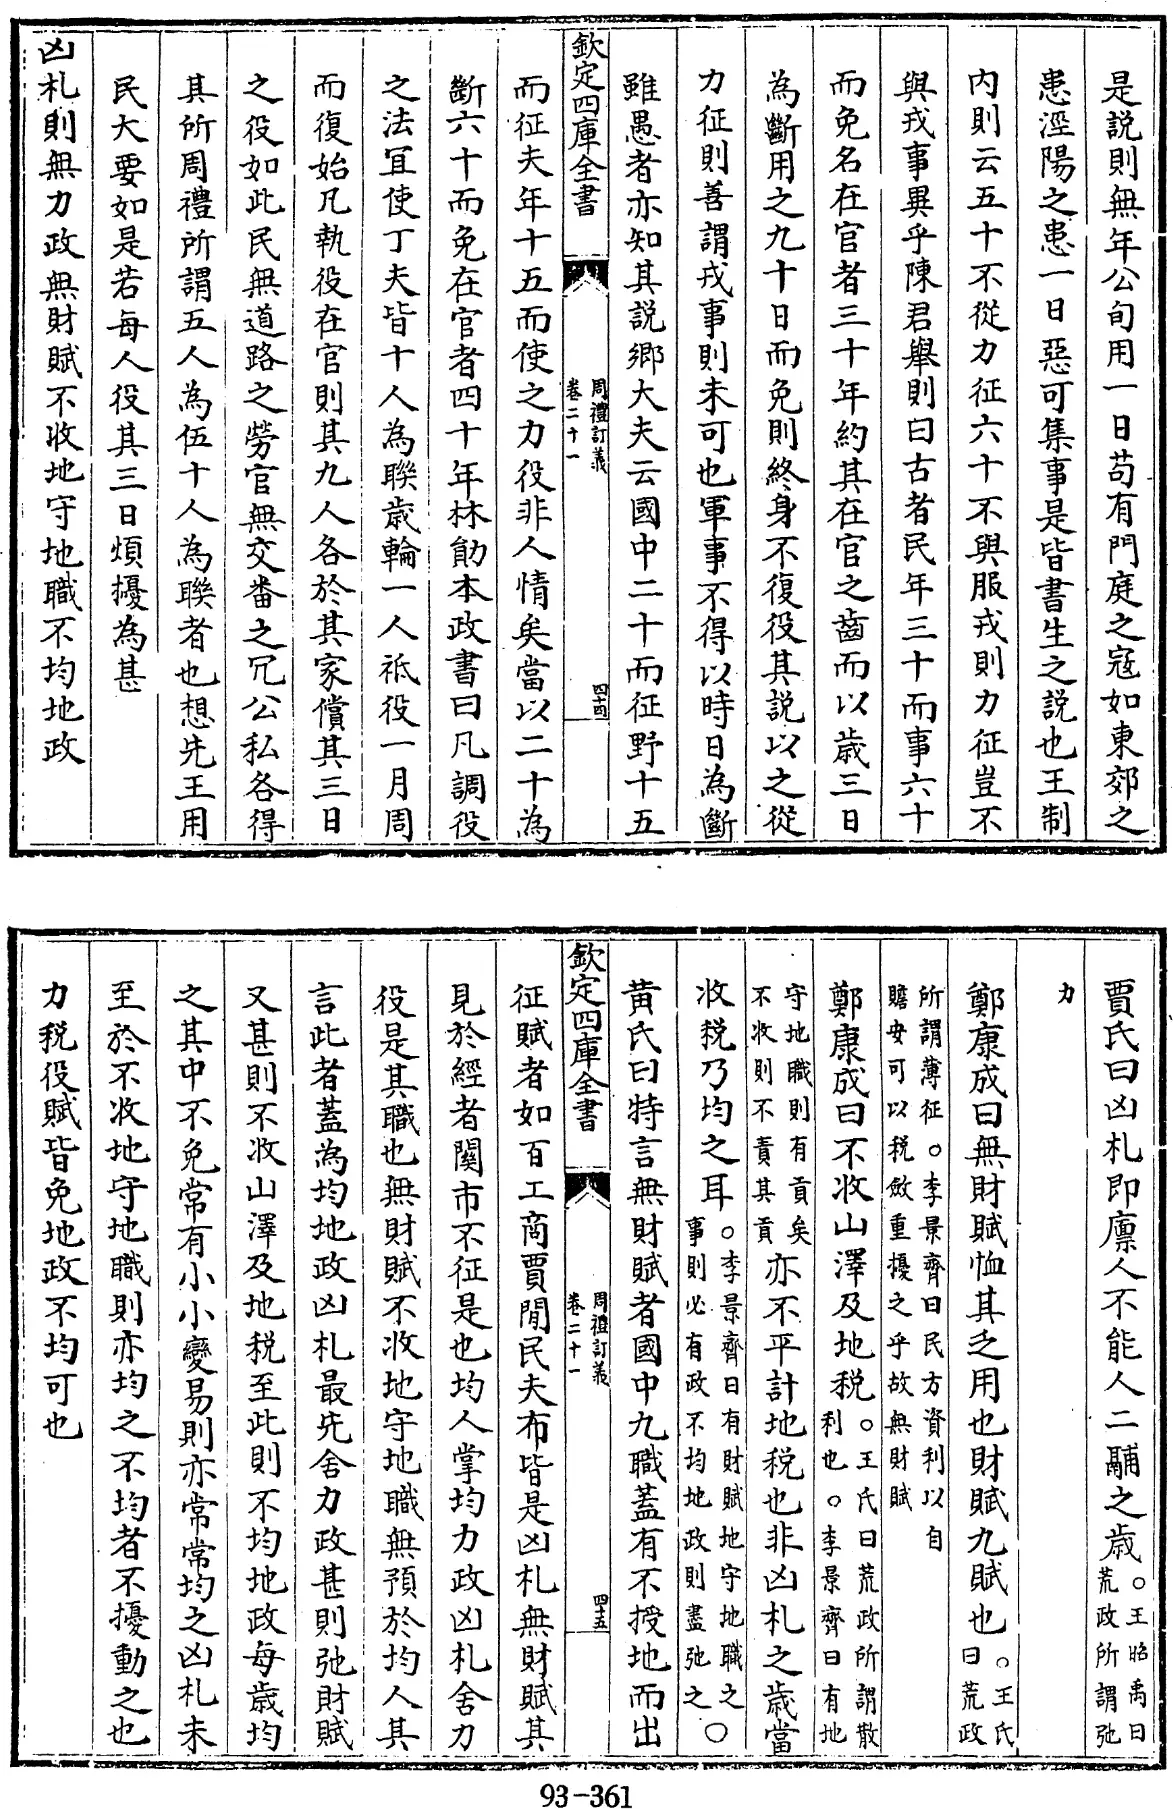 是說則無年公旬用一日苟有門庭之寇如東郊之
患涇陽之患一日惡可集事是皆書生之說也王制
内則云五十不從力征六十不與服戎則力征豈不
與戎事異乎陳君舉則曰古者民年三十而事六十
而免名在官者三十年約其在官之齒而以歲三日
為斷用之九十日而免則終身不復役其說以之從
力征則善謂戎事則未可也軍事不得以時日為斷
雖愚者亦知其說鄉大夫云國中二十而征野十五
欽定四庫全書
周禮訂義
卷二十一
四十四
而征夫年十五而使之力役非人情矣當以二十為
斷六十而免在官者四十年林勛本政書曰凡調役
之法宜使丁夫皆十人為聯歲輪一人祗役一月周
而復始凡執役在官則其九人各於其家償其三日
之役如此民無道路之勞官無交番之冗公私各得
其所周禮所謂五人為伍十人為聯者也想先王用
民大要如是若每人役其三日煩擾為甚
凶札則無力政無財賦不收地守地職不均地政
賈氏曰凶札即廪人不能人二鬴之歲。王昭禹曰荒政所謂弛
力
鄭康成曰無財賦恤其乏用也財賦九賦也。王氏曰荒政
所謂薄征。李景齊曰民方資利以自贍安可以税斂重擾之乎故無財賦
鄭康成曰不收山澤及地税。王氏曰荒政所謂散利也。李景齊曰有地
守地職則有貢矣不收則不責其貢亦不平計地税也非凶札之歲當
收税乃均之耳。李景齊曰有財賦地守地職之事則必有政不均地政則盡弛之○
黄氏曰特言無財賦者國中九職蓋有不授地而出
欽定四庫全書
周禮訂義
卷二十一
四十五
征賦者如百工商賈閒民夫布皆是凶札無財賦其
見於經者關市不征是也均人掌均力政凶札舍力
役是其職也無財賦不收地守地職無預於均人其
言此者蓋為均地政凶札最先舍力政甚則弛財賦
又甚則不收山澤及地税至此則不均地政每歲均
之其中不免常有小小變易則亦常常均之凶札未
至於不收地守地職則亦均之不均者不擾動之也
力税役賦皆免地政不均可也
93-361